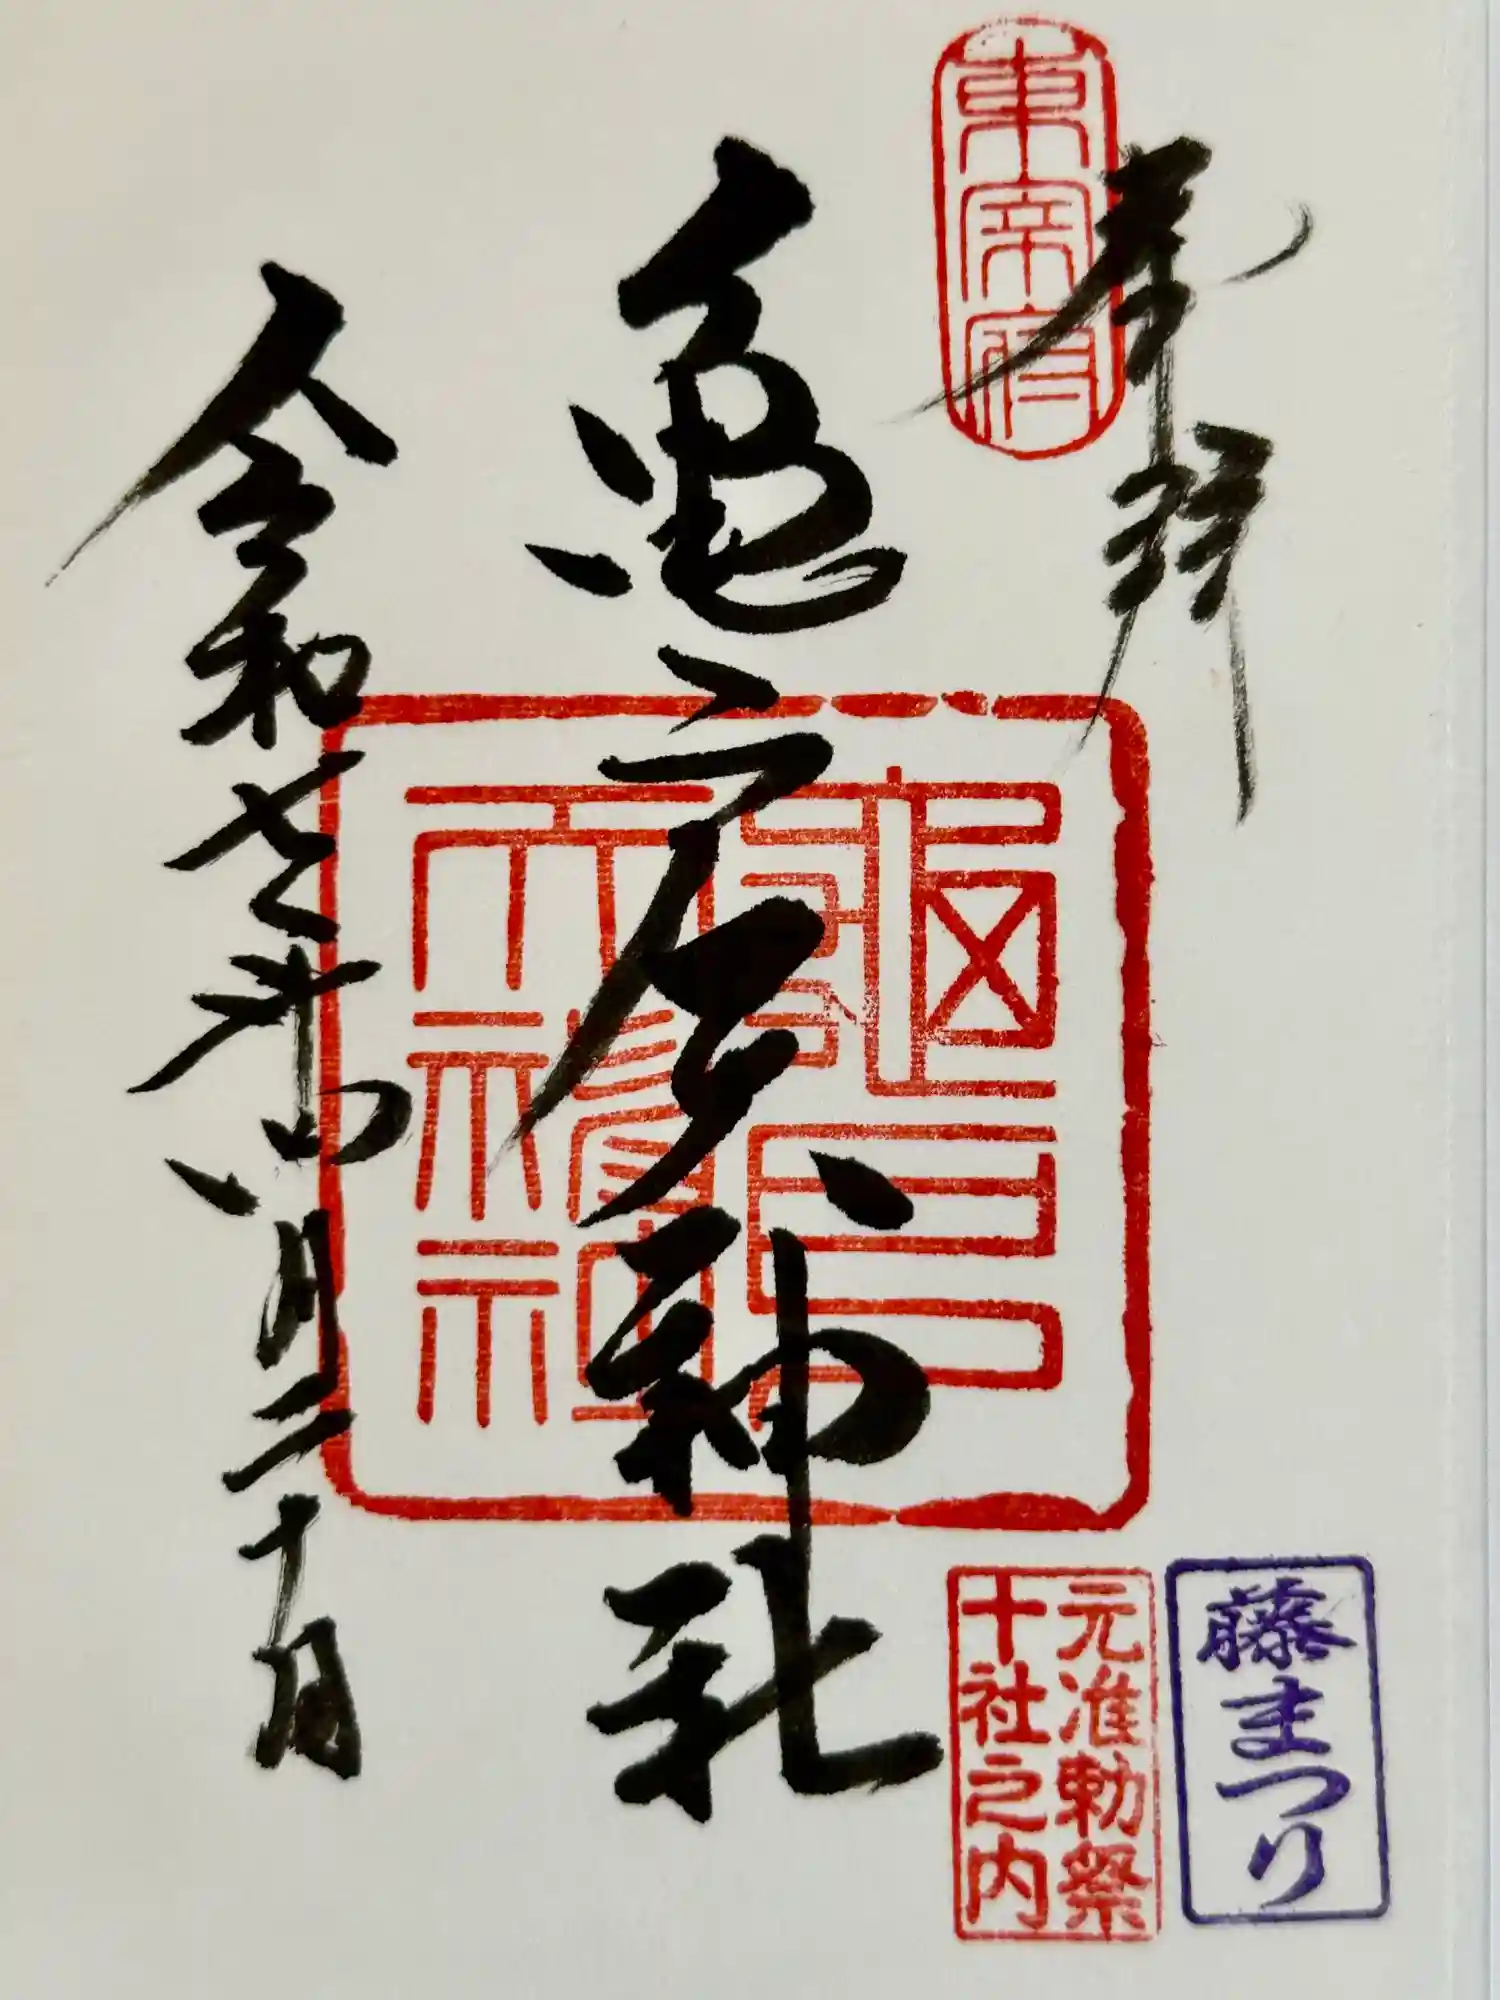 奉拝
東宰府
亀戸天神社
龜戸
天神社
令和七年四月二十日
藤まつり
元准勅祭
十社之内